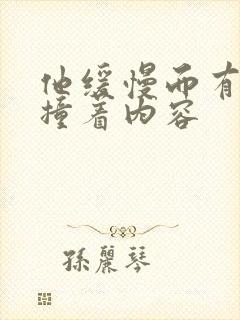 他缓慢而有
撞着内容
孫麗琴